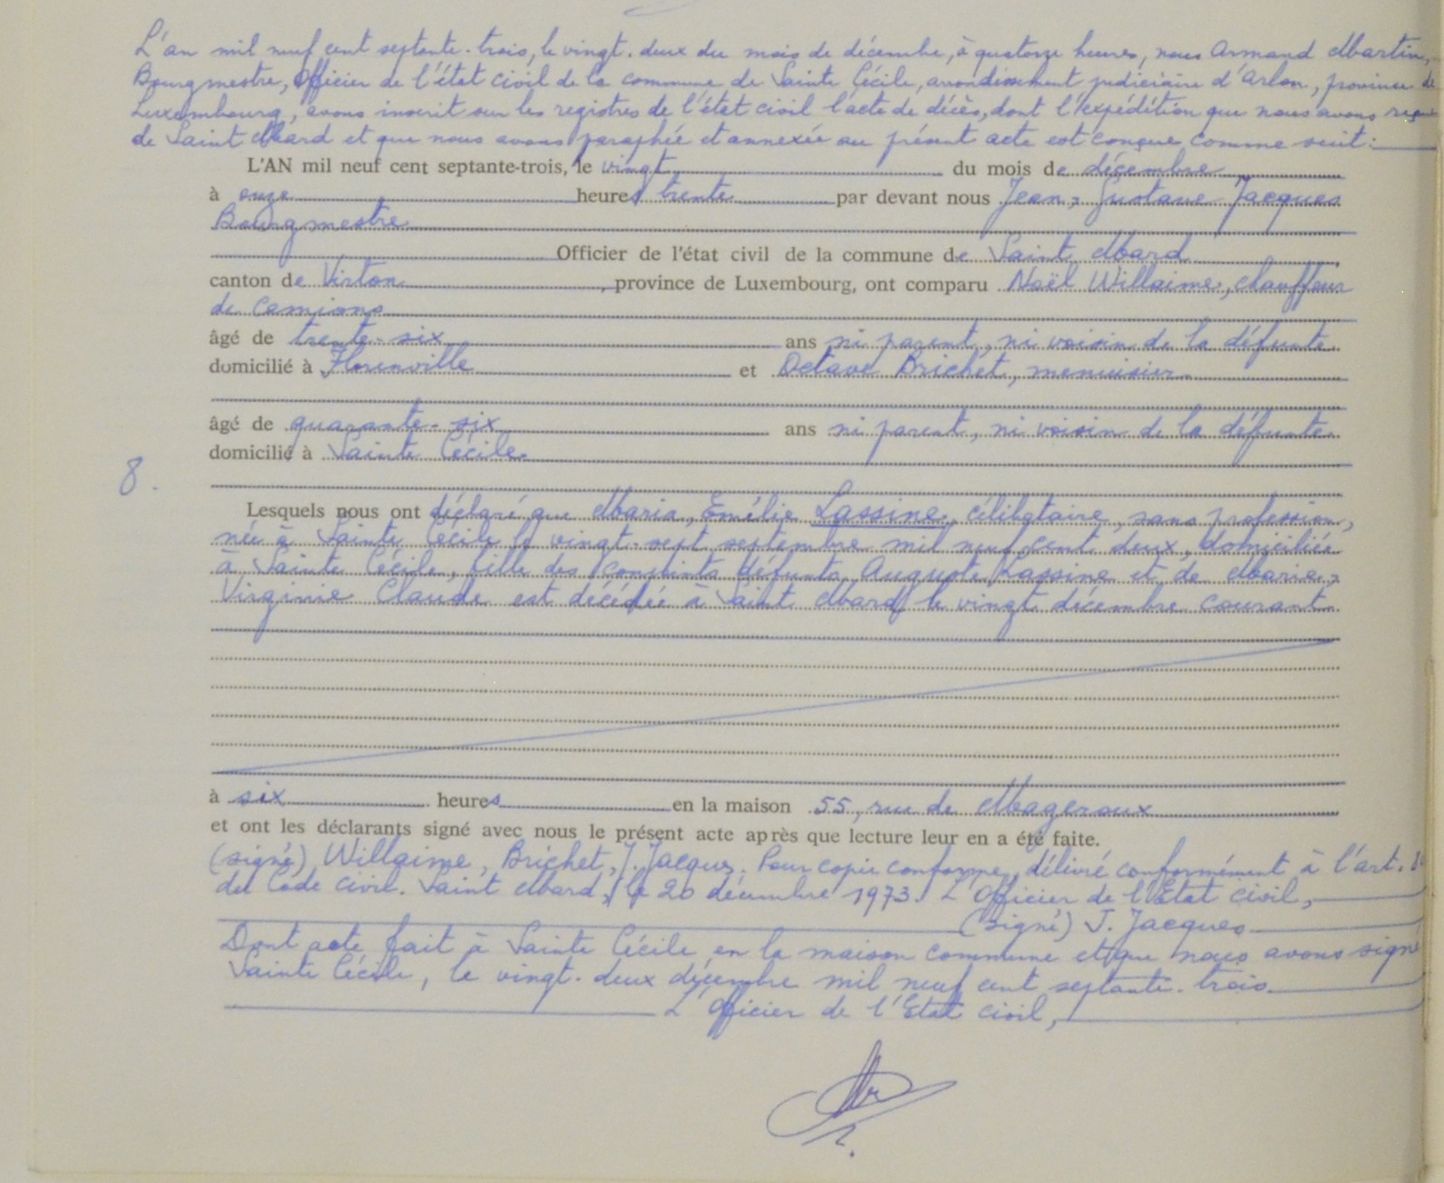 L'an mil neuf cent septante-trois, le vingt-deux du mois de décembre, à quatorze heures, nous Armand Martin,
Bourgmestre, Officier de l'état civil de la commune de Sainte Cécile, arrondissement judiciaire d'Arlon, province de
Luxembourg, avons inscrit sur les registres de l'état civil l'acte de décès, dont l'expédition que nous avons reçue
de Saint Mard et que nous avons paraphée et annexée au présent acte est conçue comme suit :
L'AN mil neuf cent septante-trois, le vingt du mois de décembre
à onze heures trente par devant nous Jean, Gustave Jacques
Bourgmestre
Officier de l'état civil de la commune de Saint Mard
canton de Virton, province de Luxembourg, ont comparu Noël Willaime, chauffeur
de camions
âgé de trente-six ans ni parent, ni voisin de la défunte
domicilié à Florenville et Octave Brichet, menuisier
âgé de quarante-six ans ni parent, ni voisin de la défunte
domicilié à Sainte Cécile.
8.
Lesquels nous ont déclaré que Maria, Emélie Lassine, célibataire, sans profession,
née à Sainte Cécile le vingt-sept septembre mil neuf cent deux, domiciliée
à Sainte Cécile, fille des conjoints défunts Auguste Lassine et de Marie,
Virginie Claude est décédée à Saint Mard le vingt décembre courant
à six heures en la maison 55, rue de Mageroux
et ont les déclarants signé avec nous le présent acte après que lecture leur en a été faite.
(signé) Willaime, Brichet, J. Jacques. Pour copie conforme, délivré conformément à l'art.
du Code civil. Saint Mard, le 20 décembre 1973. L'Officier de l'Etat civil,
(signé) J. Jacques
Dont acte fait à Sainte Cécile, en la maison commune et que nous avons signé
Sainte Cécile, le vingt-deux décembre mil neuf cent septante-trois
L'Officier de l'Etat civil,